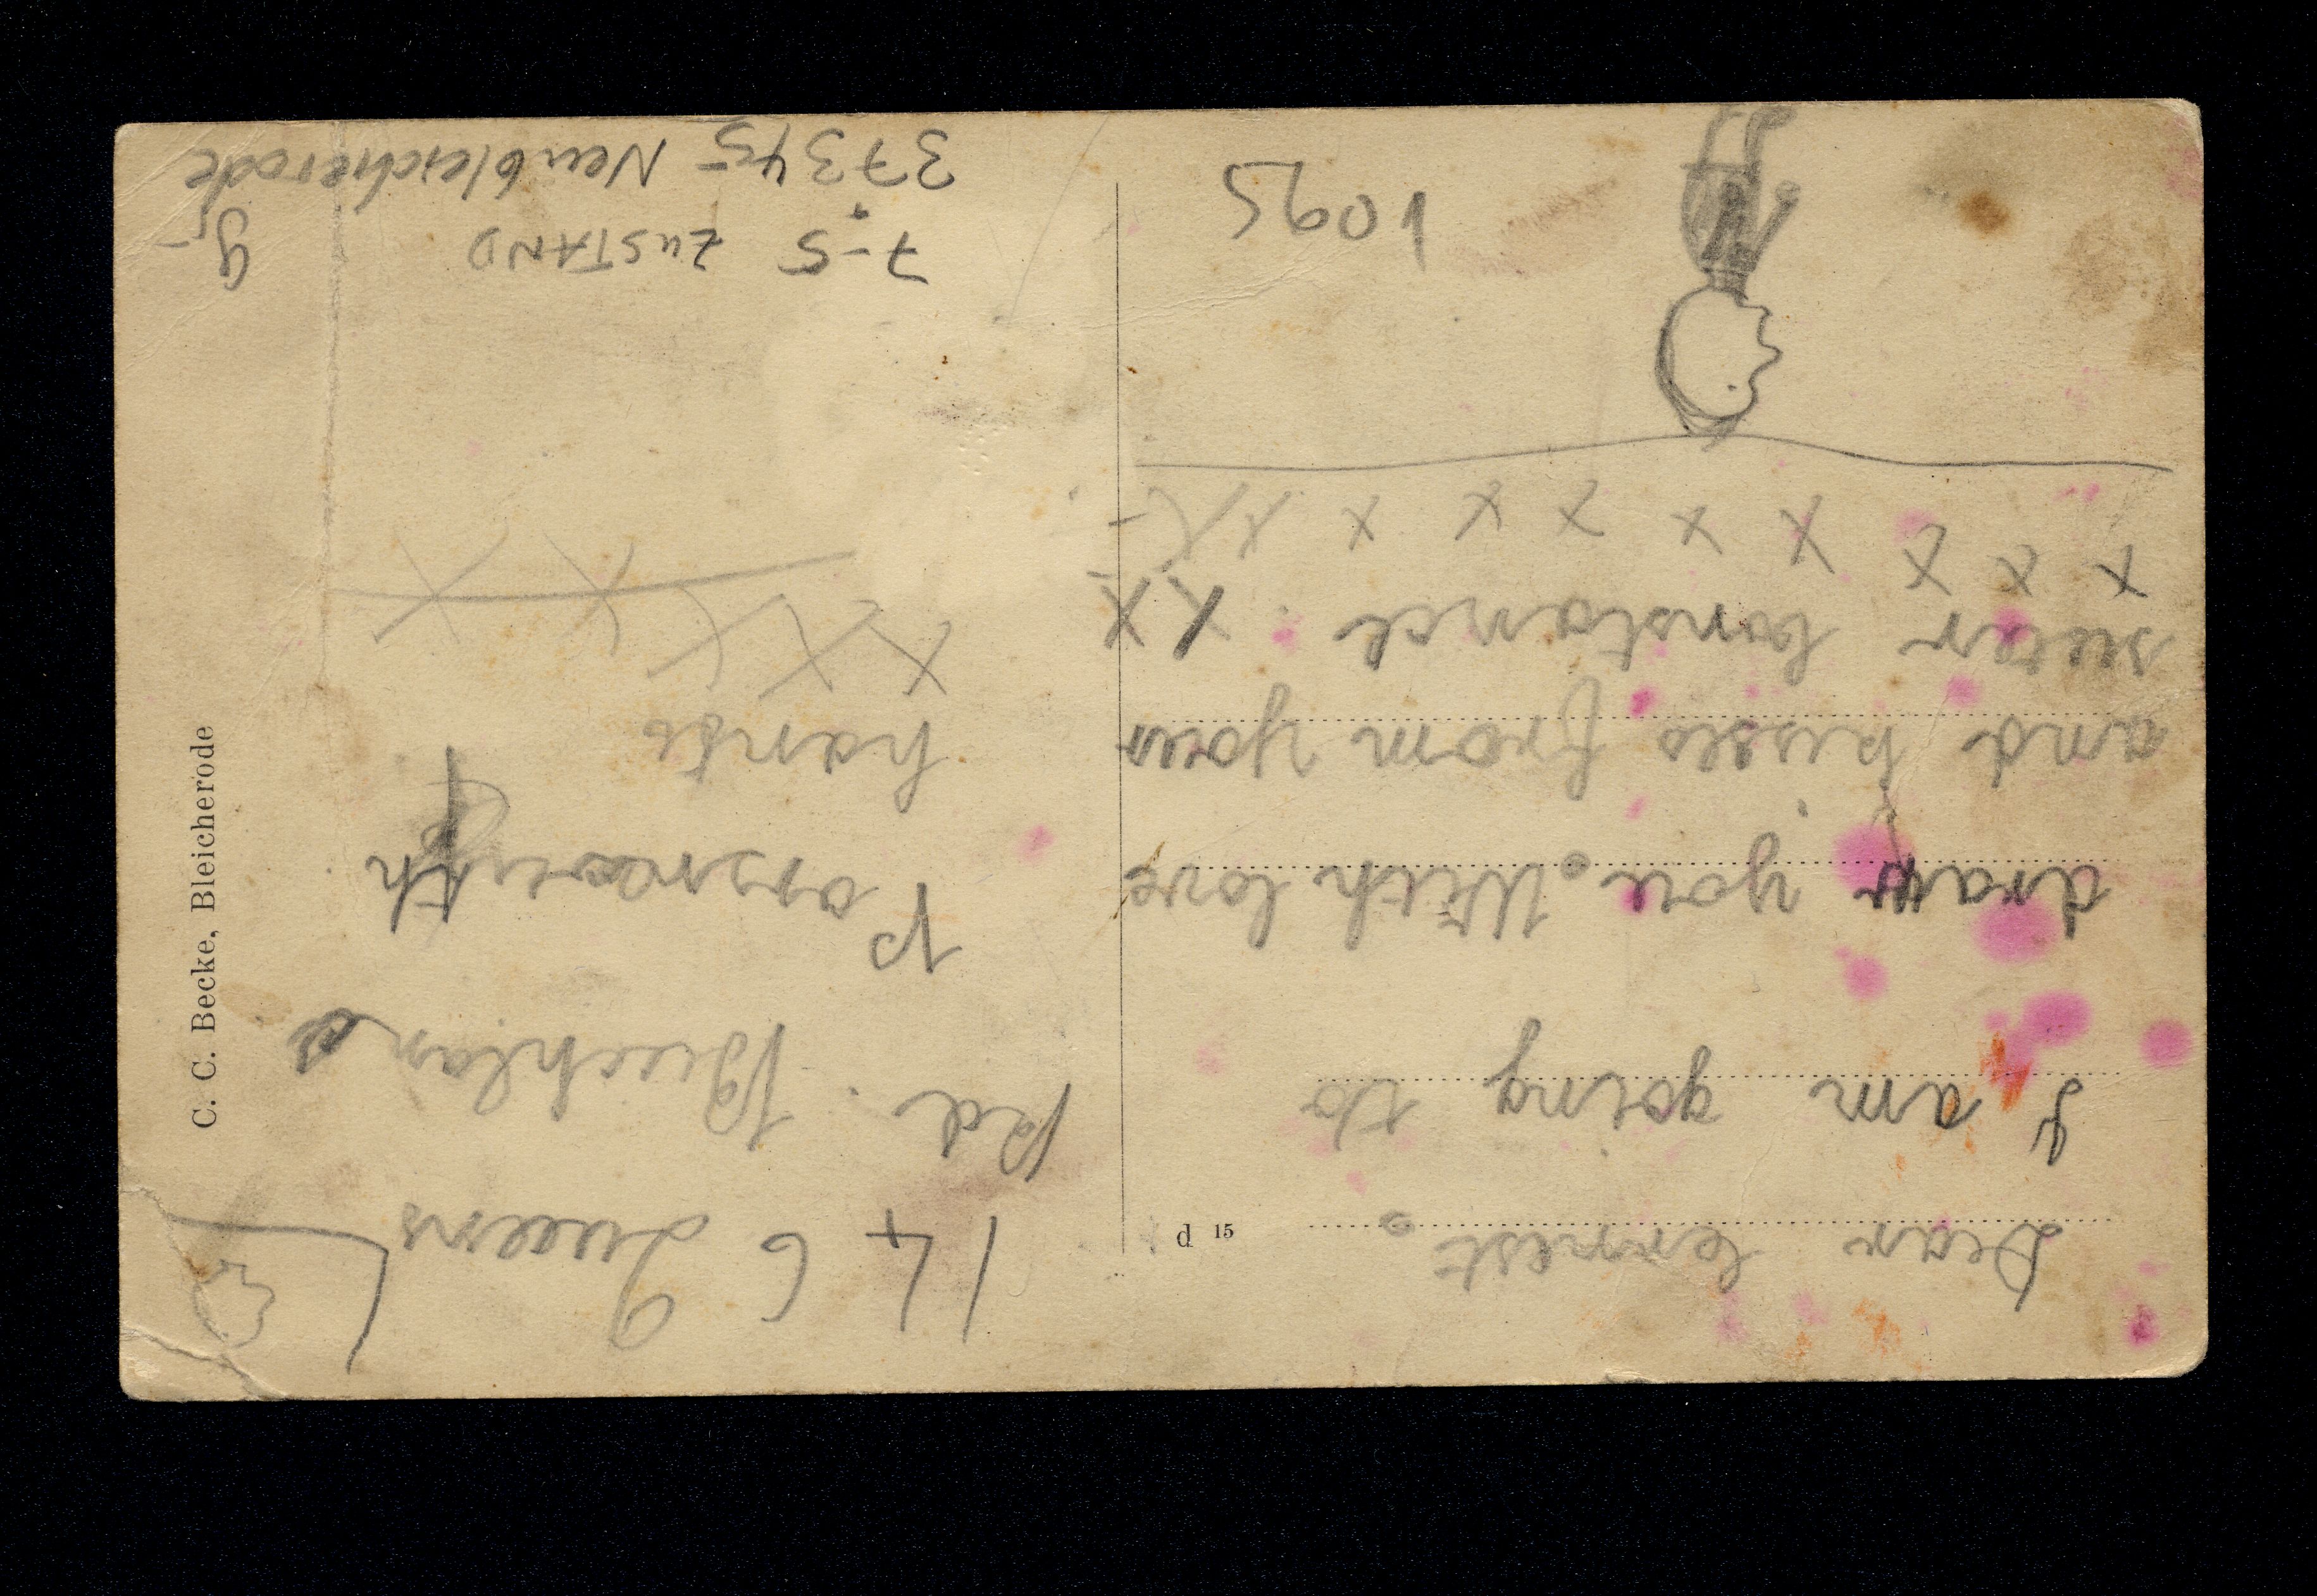 Dear Ernest.
I am going to
draw you. With love
and kisses from your
sister Constance. XX
x x x x x x x x x x
1095
146 Queens
Rd. Buckland
Porsmouth
hants
XXXXX
7-5 ZuSTAND
37345 Neubleicherode
C. C. Becke, Bleicherode
d 15